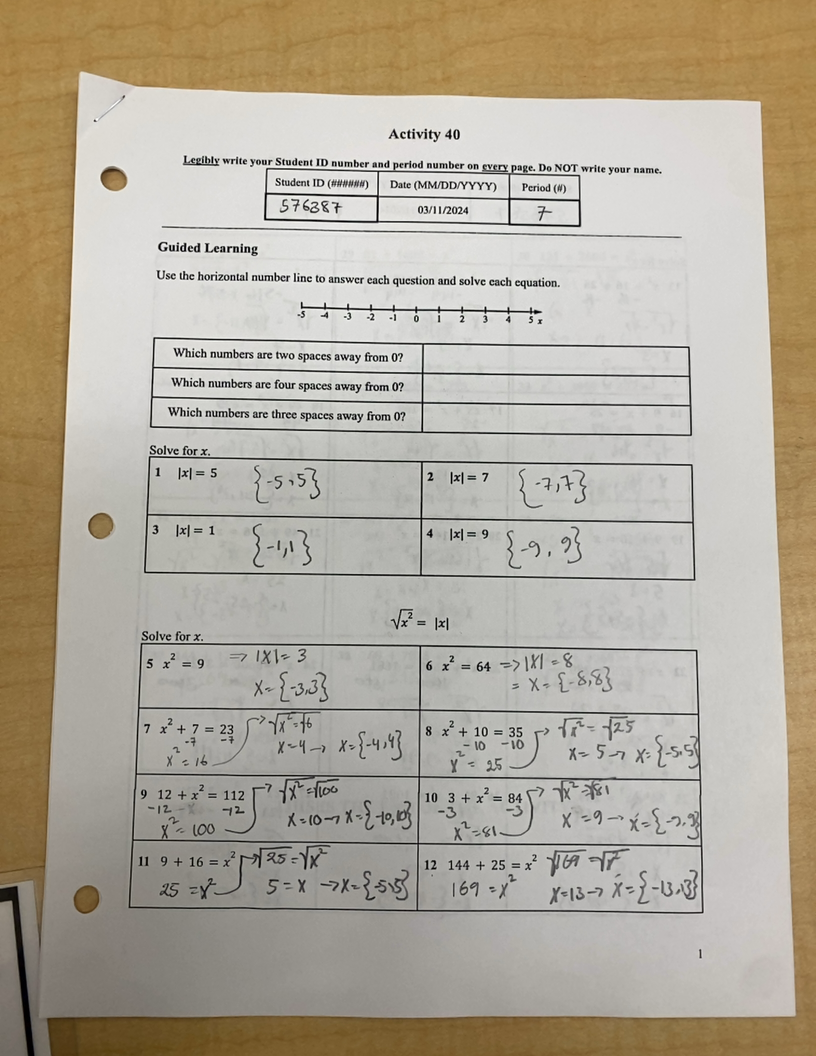 Activity 40
Legibly write your Student ID number and period number on every page. Do NOT write your name.
Student ID (######) Date (MM/DD/YYYY) Period (#)
576387 03/11/2024 7
Guided Learning
Use the horizontal number line to answer each question and solve each equation.
-5 -4 -3 -2 -1 0 1 2 3 4 5 x
Which numbers are two spaces away from 0?
Which numbers are four spaces away from 0?
Which numbers are three spaces away from 0?
Solve for x.
1 |x| = 5 {-5,5}
2 |x| = 7 {-7,7}
3 |x| = 1 {-1,1}
4 |x| = 9 {-9, 9}
√x² = |x|
Solve for x.
5 x² = 9 => |X| = 3
X={-3,3}
6 x² = 64 => |X| = 8
= X={-8,8}
7 x² + 7 = 23 → √x²=√16
-7 -7 x=4 → x={-4,4}
x² = 16
8 x² + 10 = 35 → √x² = √25
-10 -10 x= 5 → x={-5,5}
x² = 25
9 12 + x² = 112 → √x²=√100
-12 -12 x=10 → x={-10,10}
x² = 100
10 3 + x² = 84 → √x²=√81
-3 -3 x=9 → x={-9,9}
x²=81
11 9 + 16 = x² → √25 = √x²
25 = x² 5 = x → x={-5,5}
12 144 + 25 = x² √169 = √x²
169 = x² x=13 → x={-13,13}
1